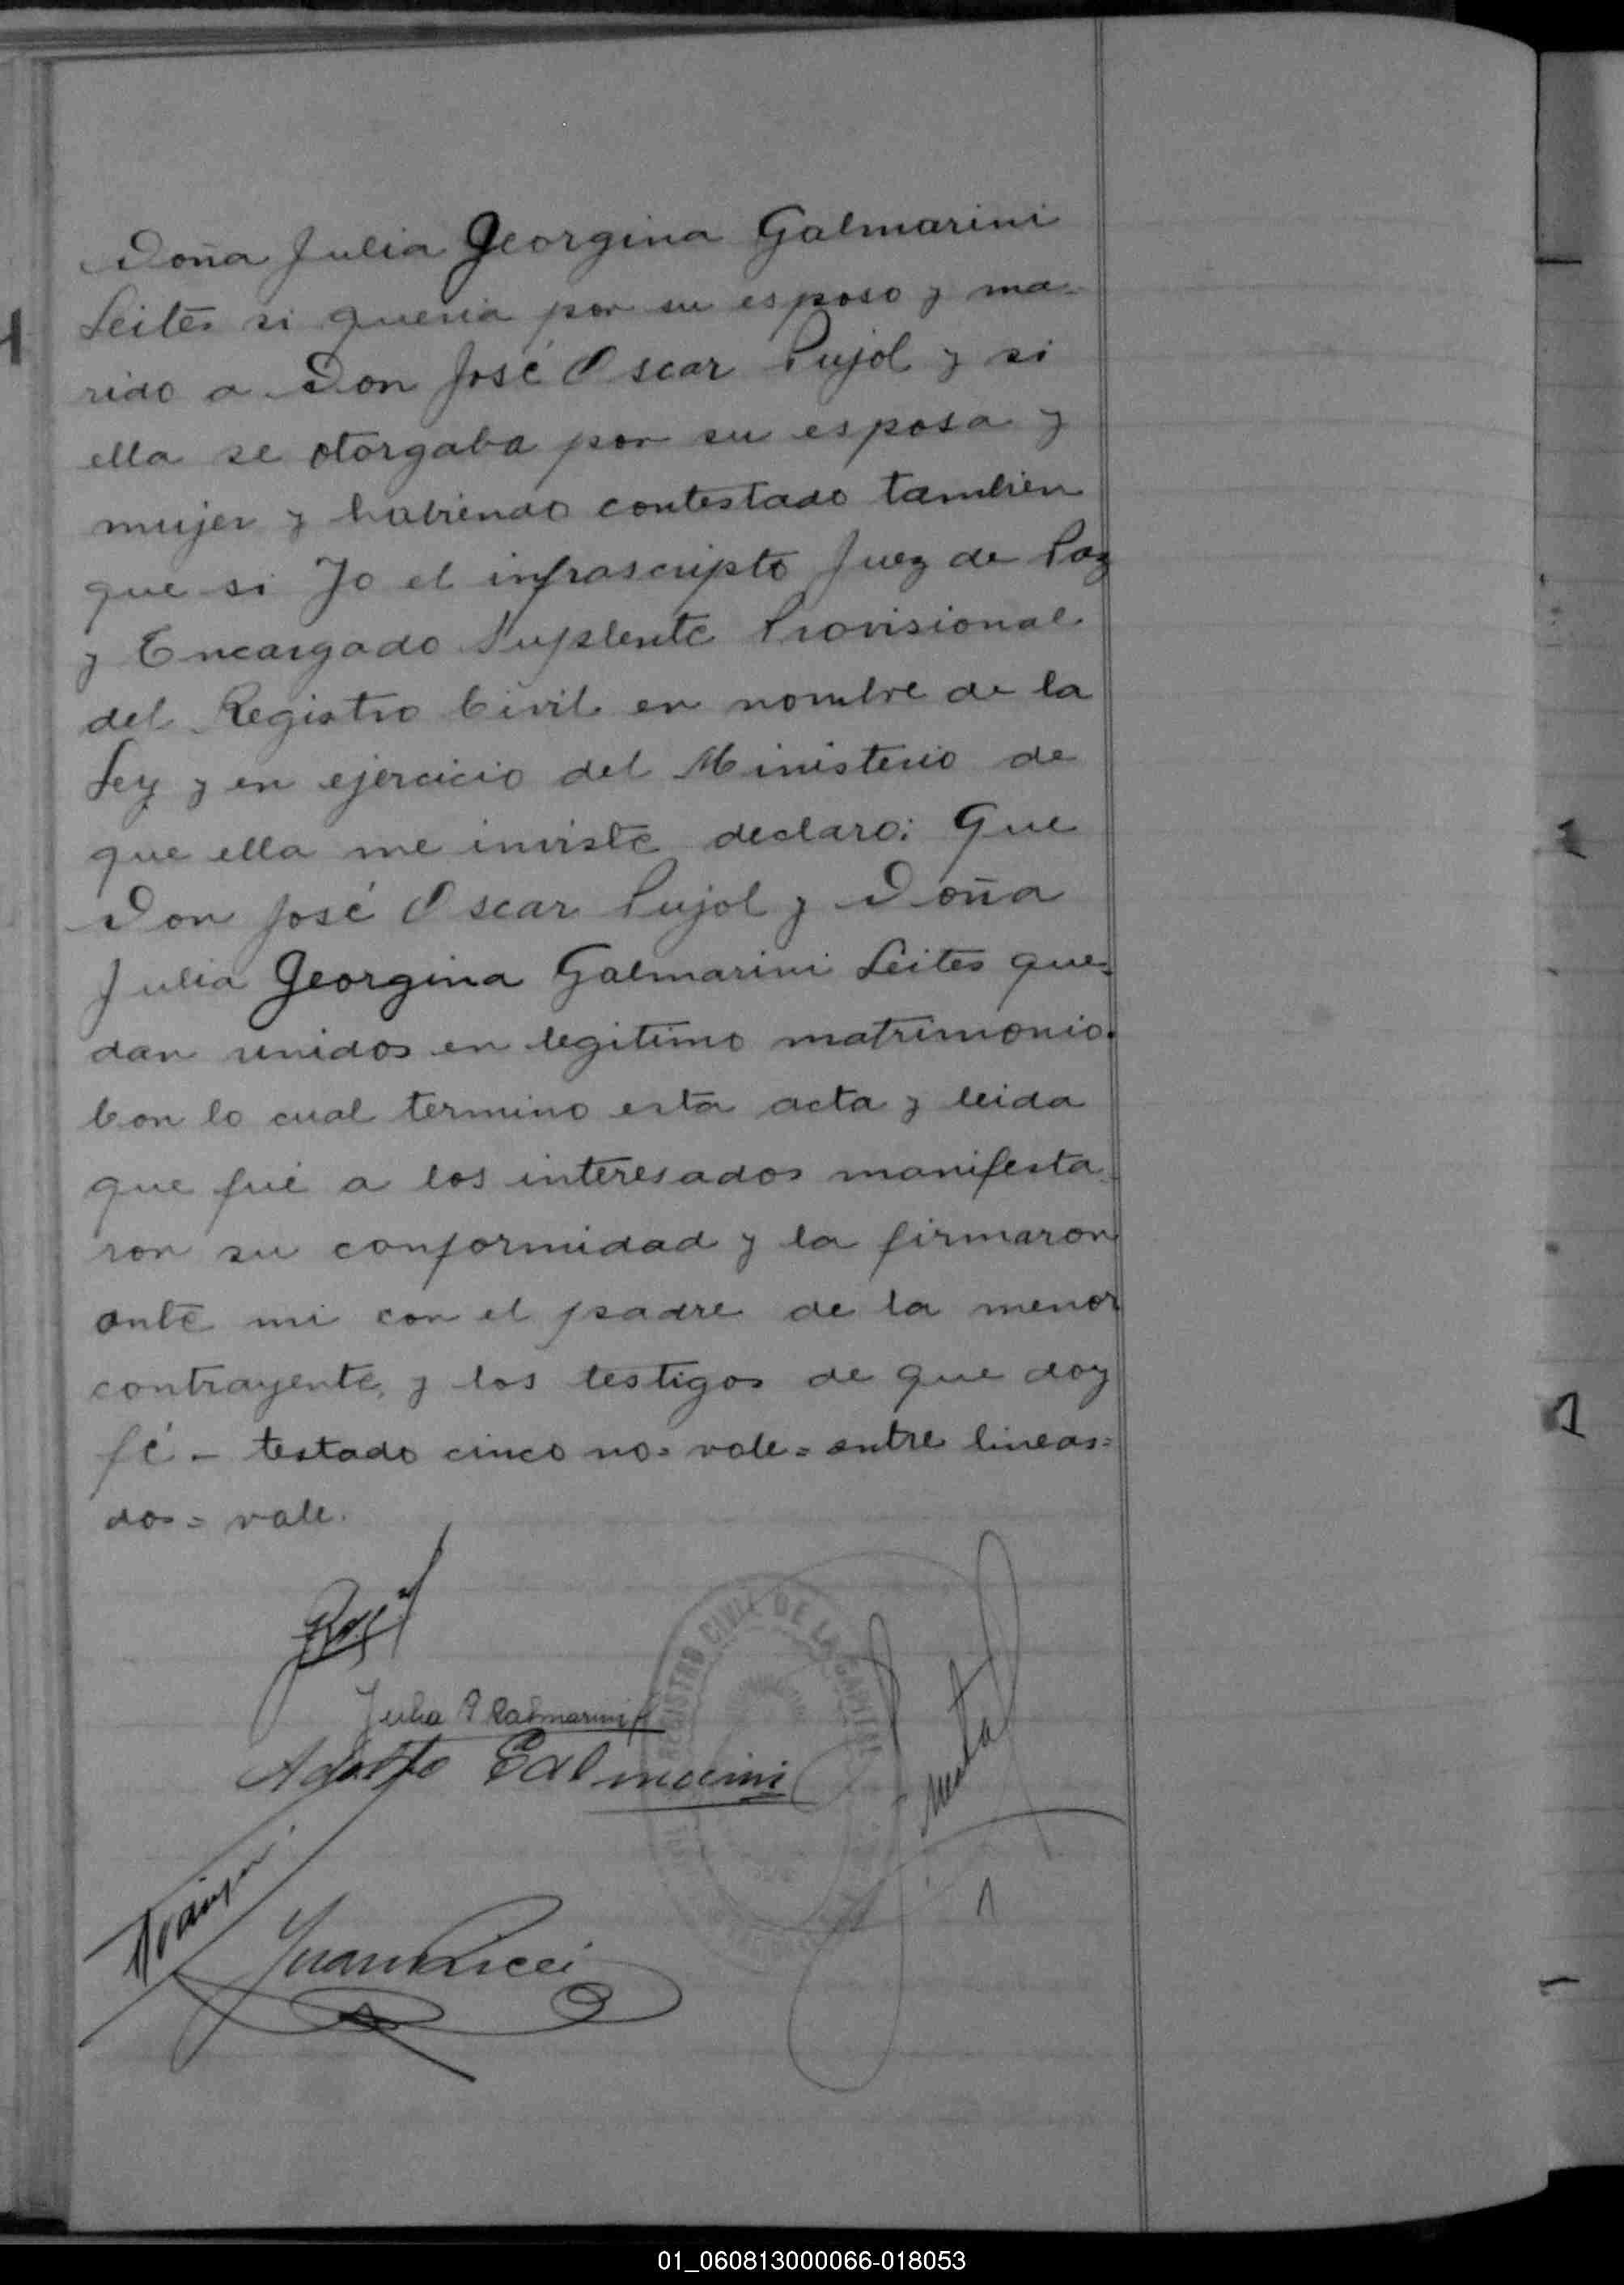 Doña Julia Georgina Galmarini
Leites si queria por su esposo y ma-
rido a Don José Oscar Pujol y si
ella se otorgaba por su esposa y
mujer y habiendo contestado tambien
que si Yo el infrascripto Juez de Paz
y Encargado Suplente Provisional
del Registro Civil en nombre de la
Ley y en ejercicio del Ministerio de
que ella me inviste declaro: Que
Don José Oscar Pujol y Doña
Julia Georgina Galmarini Leites que-
dan unidos en legitimo matrimonio.
Con lo cual termino esta acta y leida
que fué a los interesados manifesta-
ron su conformidad y la firmaron
ante mi con el padre de la menor
contrayente, y los testigos de que doy
fé - testado cinco no = vale = entre lineas =
dos = vale.
REGISTRO CIVIL DE LA CAPITAL
Julia G Galmarini
Adolfo Galmarini
Juan Ricci
1
01_060813000066-018053